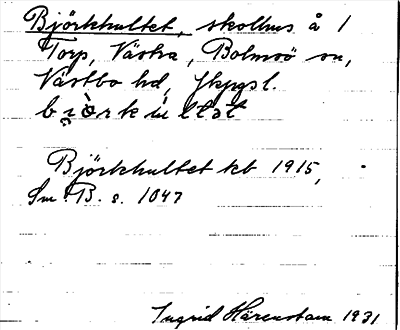 Björkhultet, skolhus å 1
Torp, Västra, Bolmsö sn,
Västbo hd, Jkpgsl.
bi̯òrkùltət
Björkhultet kb 1915,
Sm. B. s. 1047
Ingrid Härenstam 1931